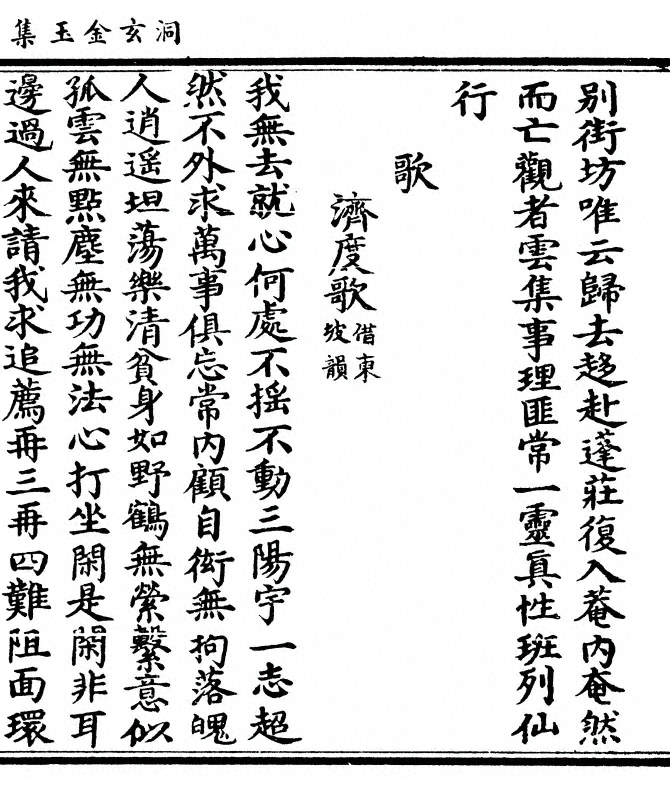 洞玄金玉集
別街坊唯云歸去趍赴蓬莊復入菴内奄然
而亡觀者雲集事理匪常一靈眞性班列仙
行
歌
濟度歌借東坡韻
我無去就心何處不摇不動三陽宇一志超
然不外求萬事俱忘常内顧自衒無拘落魄
人逍遥坦蕩樂清貧身如野鶴無縈繫意似
孤雲無點塵無功無法心打坐閑是閑非耳
邊過人來請我求追薦再三再四難阻面環